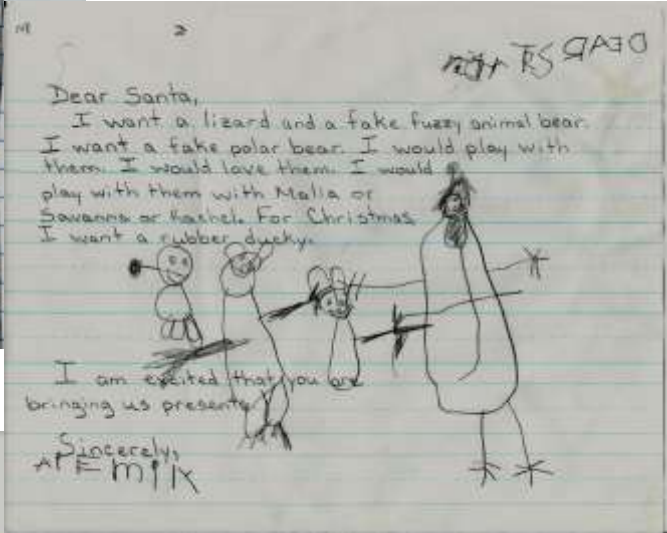 Dear Santa,
I want a lizard and a fake fuzzy animal bear.
I want a fake polar bear. I would play with
them. I would love them. I would
play with them with Malia or
Savanna or Rachel. For Christmas
I want a rubber ducky.
I am excited that you are
bringing us presents.
Sincerely,